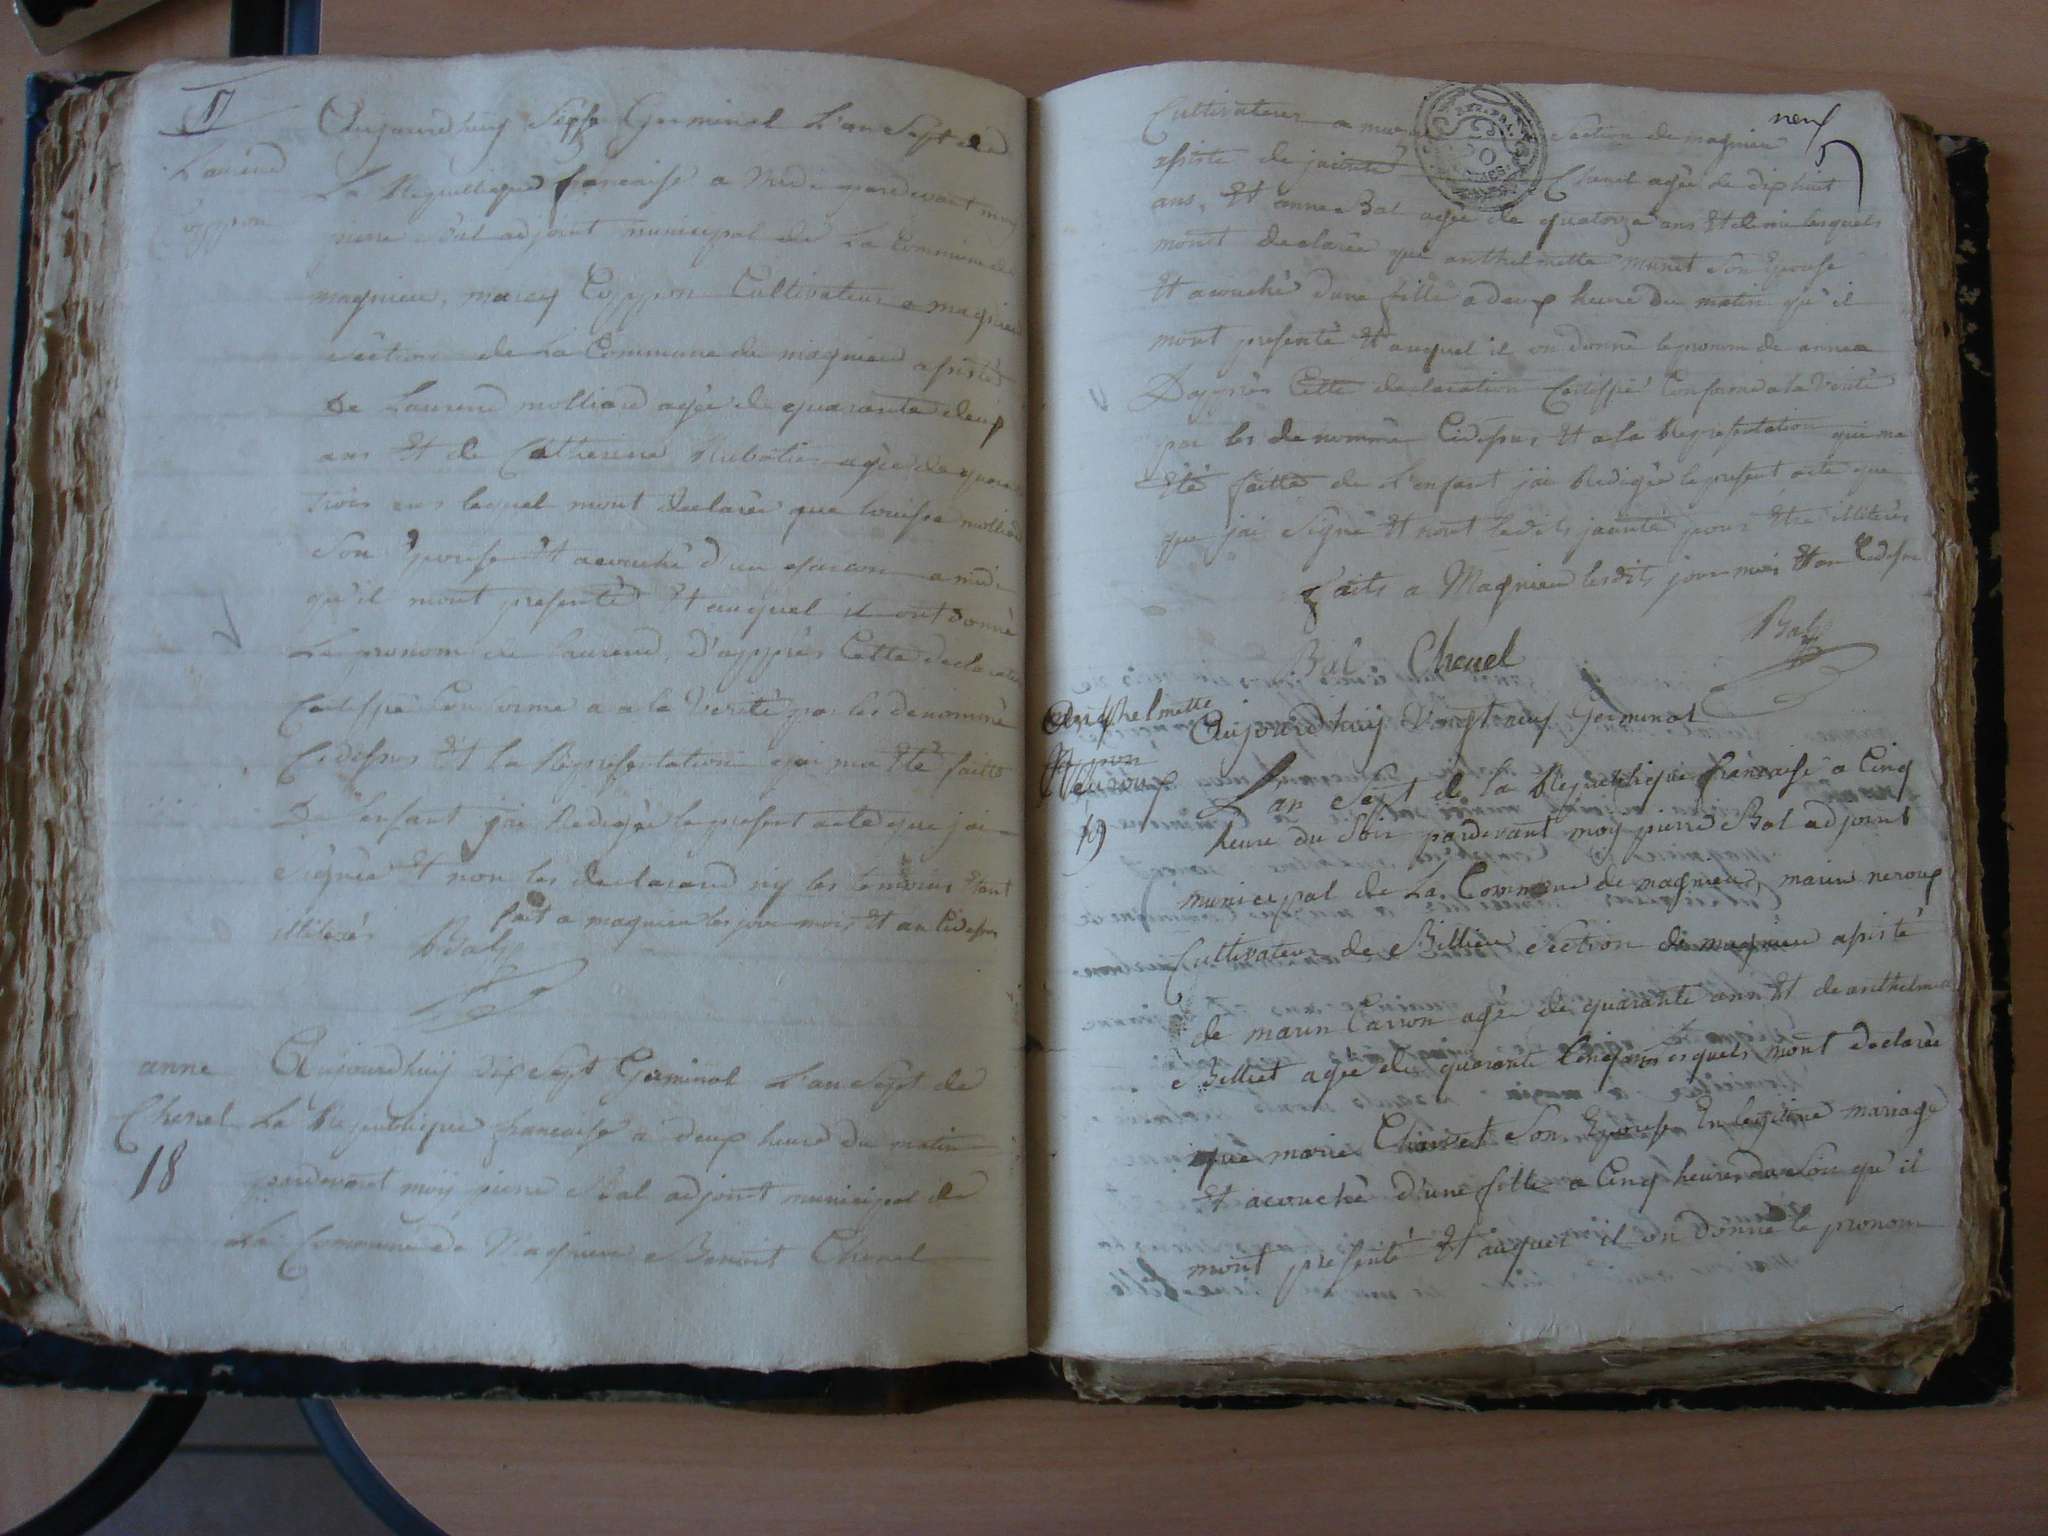 17
Laurend
Coppon
Aujourdhuy Sept Germinal L'an Sept de
La Republique francaise a Midi pardevant moy
pierre Bal adjoint municipal de La Commune de
magnieu, marcy Coppon Cultivateur a magnieu
Section de La Commune de magnieu assisté
De Laurend molliard agée de quarante deux
ans Et de Catherine Rubatier agée de quara
trois ans lequel mont declarée que louise molliard
Son Epouse Et acouché d'un garcon a midi
qu'il mont presenté Et auquel il ont donné
Le pronom de laurend, d'apprès Cette declaration
Certiffié Conforme a la Verité par les denommé
Cidessus Et la Representation qui ma Eté faitte
De l'enfant jai Redigée le present acte que jai
Signée Et non les declarand ny les temoins Etant
illiterés fait a magnieu les jour mois Et an Cidessus
Bal
anne
Chenel
18
Aujourdhuy dix Sept Germinal L'an Sept de
La Republique francaise a deux heure du matin
pardevant moy pierre Bal adjoint municipal de
La Commune de Magnieu Benoit Chenel
neuf
Cultivateur a Section de magnieu
assisté de Chenel agée de dix huit
ans, Et anne Bal agée de quatorze ans Et demi lesquels
mont declarée que anthelmette munet Son Epouse
Et acouché d'une fille a deux heure du matin qu'il
mont presenté Et auquel il on donné le pronom de anne
Dapprès Cette declaration Certiffié Conforme a la Verité
par les denommé Cidessus Et a la Representation qui ma
Eté faitte de L'enfant jai Redigée le present acte que
que jai Signé Et nont pour Etre illiterés
faits a Magnieu lesdits jour mois Et an Cidessus
Bal
Bal Chenel
Anthelmette
Neuroux
19
Aujourdhuy Vingt neuf Germinal
L'an Sept de La Republique francaise a Cinq
heure du Soir pardevant moy pierre Bal adjoint
municipal de La Commune de magnieu, marin neroux
Cultivateur de Billieu Section de magnieu assisté
de marin Carron agée de quarante ans Et de anthelme
Billiet agée de quarante Cinq ans lesquels mont declarée
que marie Charvet Son Epouse En legitime mariage
Et acouché d'une fille a Cinq heures du Soir qu'il
mont presenté Et auquel il on donné le pronom